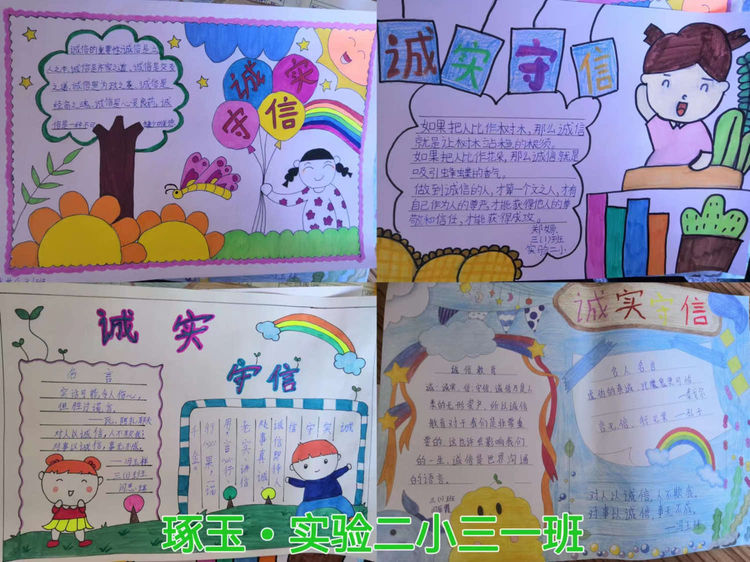 诚信的重要性诚信是立
人之本,诚信是齐家之道,诚信是交友
之道,诚信是为政之基,诚信是
经商之魂,诚信是心灵良药,诚
信是一种不可
诚实
守信
诚实守信
如果把人比作树木,那么诚信
就是让树木站稳的根须。
如果把人比作花朵,那么诚信就是
吸引蜂蝶的香气。
做到诚信的人,才算一个文之人,才有
自己作为人的尊严,才能获得把人的尊
敬和信任,才能获得成攻。
三(1)班
实验二小
诚实
守信
名言
对人以诚信,人不欺我;
对事以诚信,事无不成。
——冯玉祥
三(1)班
诚实守信
诚信教育
诚:诚实,信:守信,诚信乃是人
类的无形资产,所以诚信
教育对于我们是非常重
要的,这也许关影响我们
的一生,诚信是世界沟通
的语言。
三(1)班
名人名句
虚伪的真诚,比魔鬼更可怕
言必信,行必果——孔子
对人以诚信,人不欺我,
对事以诚信,事无不成。
——冯玉祥
琢玉·实验二小三一班